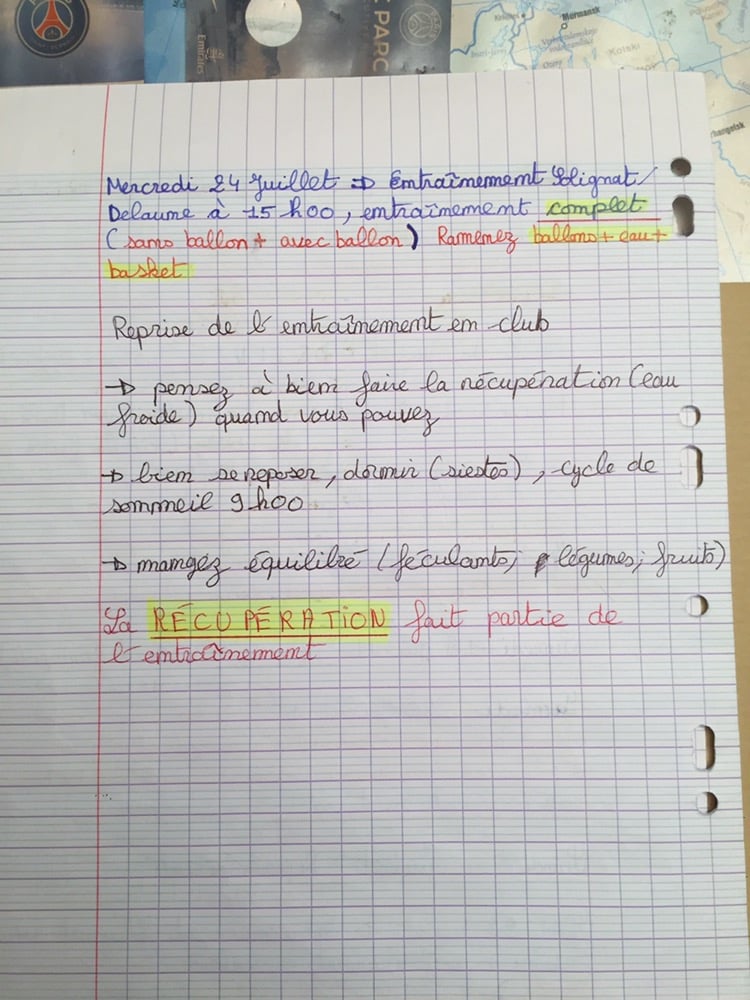 Emirates
PARC
Mermansk
Kolski
Mercredi 24 Juillet => Entraînement Solignat/
Delaume à 15 h00, entraînement complet
(sans ballon + avec ballon) Ramenez ballons + eau +
basket
Reprise de l'entraînement en club
→ pensez à bien faire la récupération (eau
froide) quand vous pouvez
→ bien se reposer, dormir (siestes), cycle de
sommeil 9h00
→ mangez équilibré (féculants, légumes, fruits)
La RÉCUPÉRATION fait partie de
l'entraînement